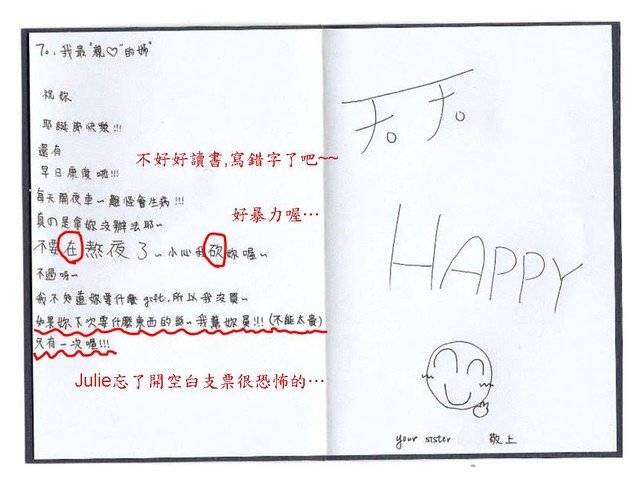 To:我最"親♡"的姊
祝妳
耶誕節快樂!!!
還有
早日康復啦!!!
不好好讀書,寫錯字了吧~~
每天開夜車~難怪會生病!!!
好暴力喔…
真の是拿妳沒辦法耶~
不要在熬夜了~小心我砍妳喔~
不過呀~
我不知道妳要什麼gift,所以我沒買~
如果妳下次要什麼東西的話~我幫妳買!!!(不能太貴)
只有一次喔!!!
Julie忘了開空白支票很恐怖的…
天天
HAPPY
your sister 敬上